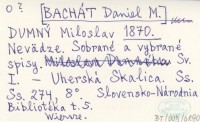 0?
[BACHÁT Daniel M.]
DUMNÝ Miloslav 1870.
Nevädze. Sobrané a vybrané
spisy. Miloslav Dumného Sv.
I. – Uherská Skalica. Ss.
Ss. 274, 8°. Slovensko-Národnia
Bibliotéka t. 5.
Wiersze.